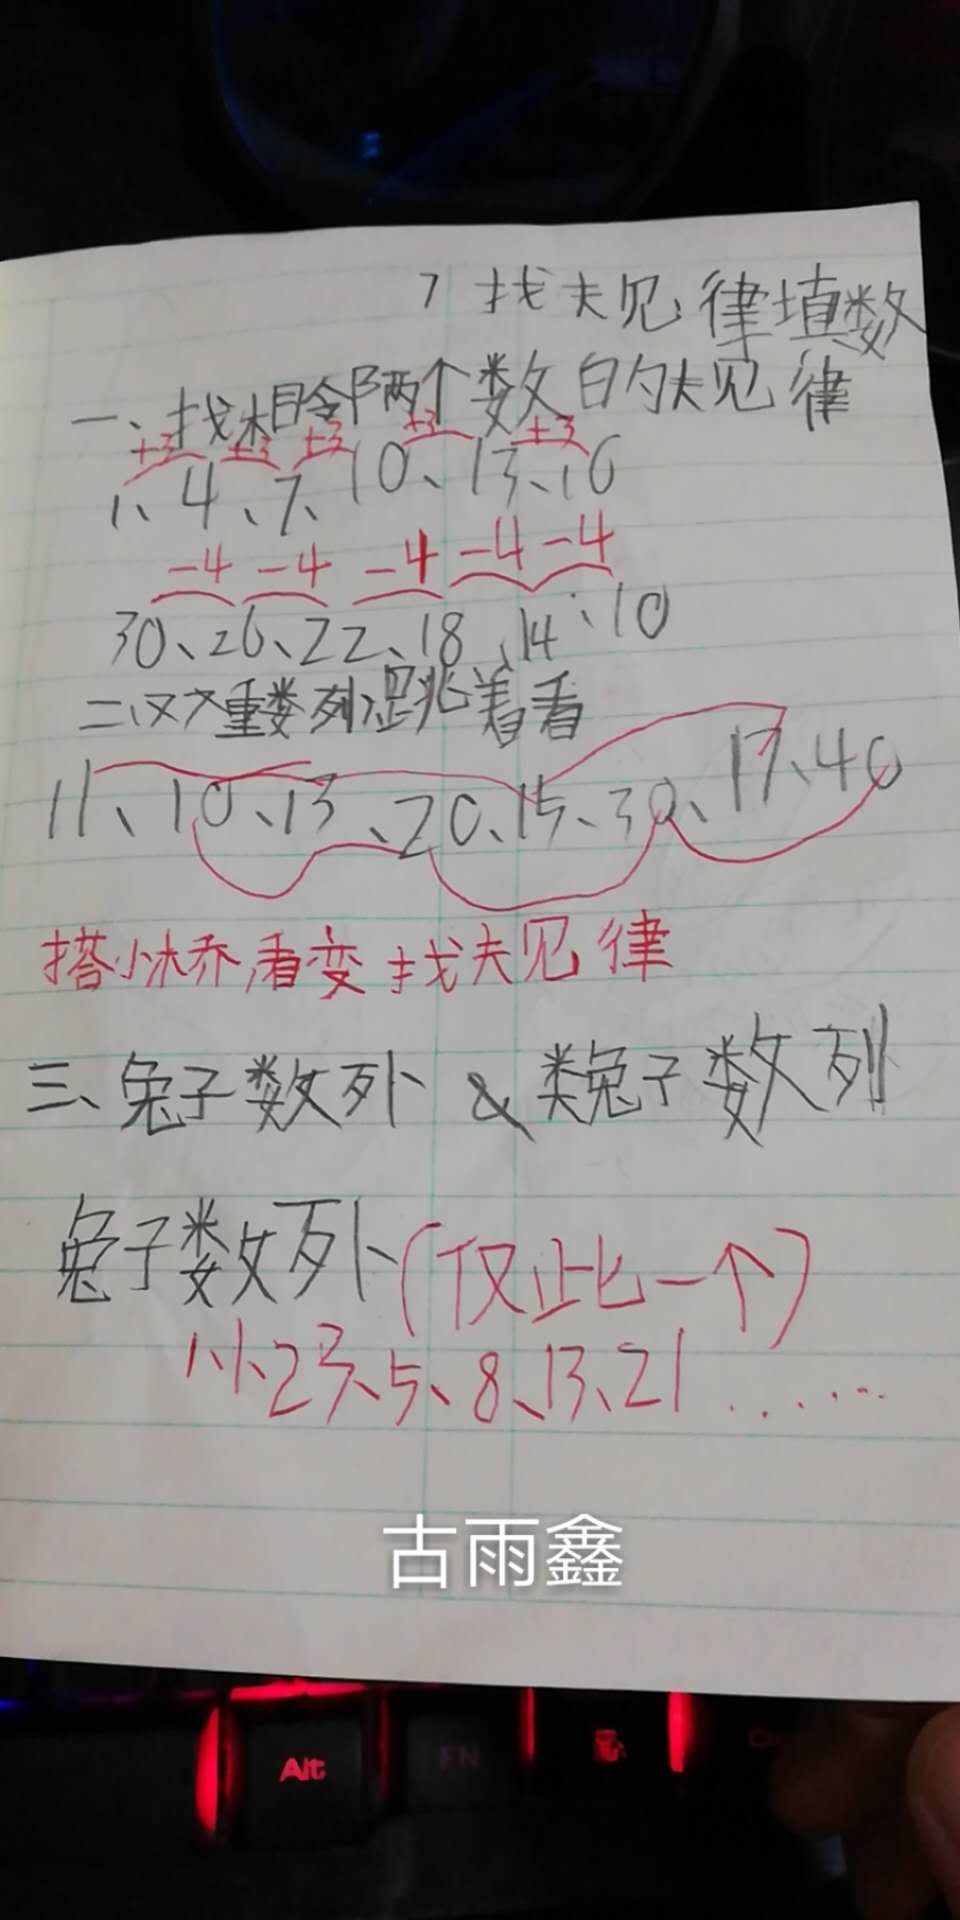 7 找规律填数
一、找相邻两个数的规律
+3 +3 +3 +3 +3
1、4、7、10、13、16
-4 -4 -4 -4 -4
30、26、22、18、14、10
二、双重数列 跳着看
11、10、13、20、15、30、17、40
搭小桥,看变 找规律
三、兔子数列 & 类兔子数列
兔子数列(仅此一个)
1、1、2、3、5、8、13、21......
古雨鑫
Alt
FN